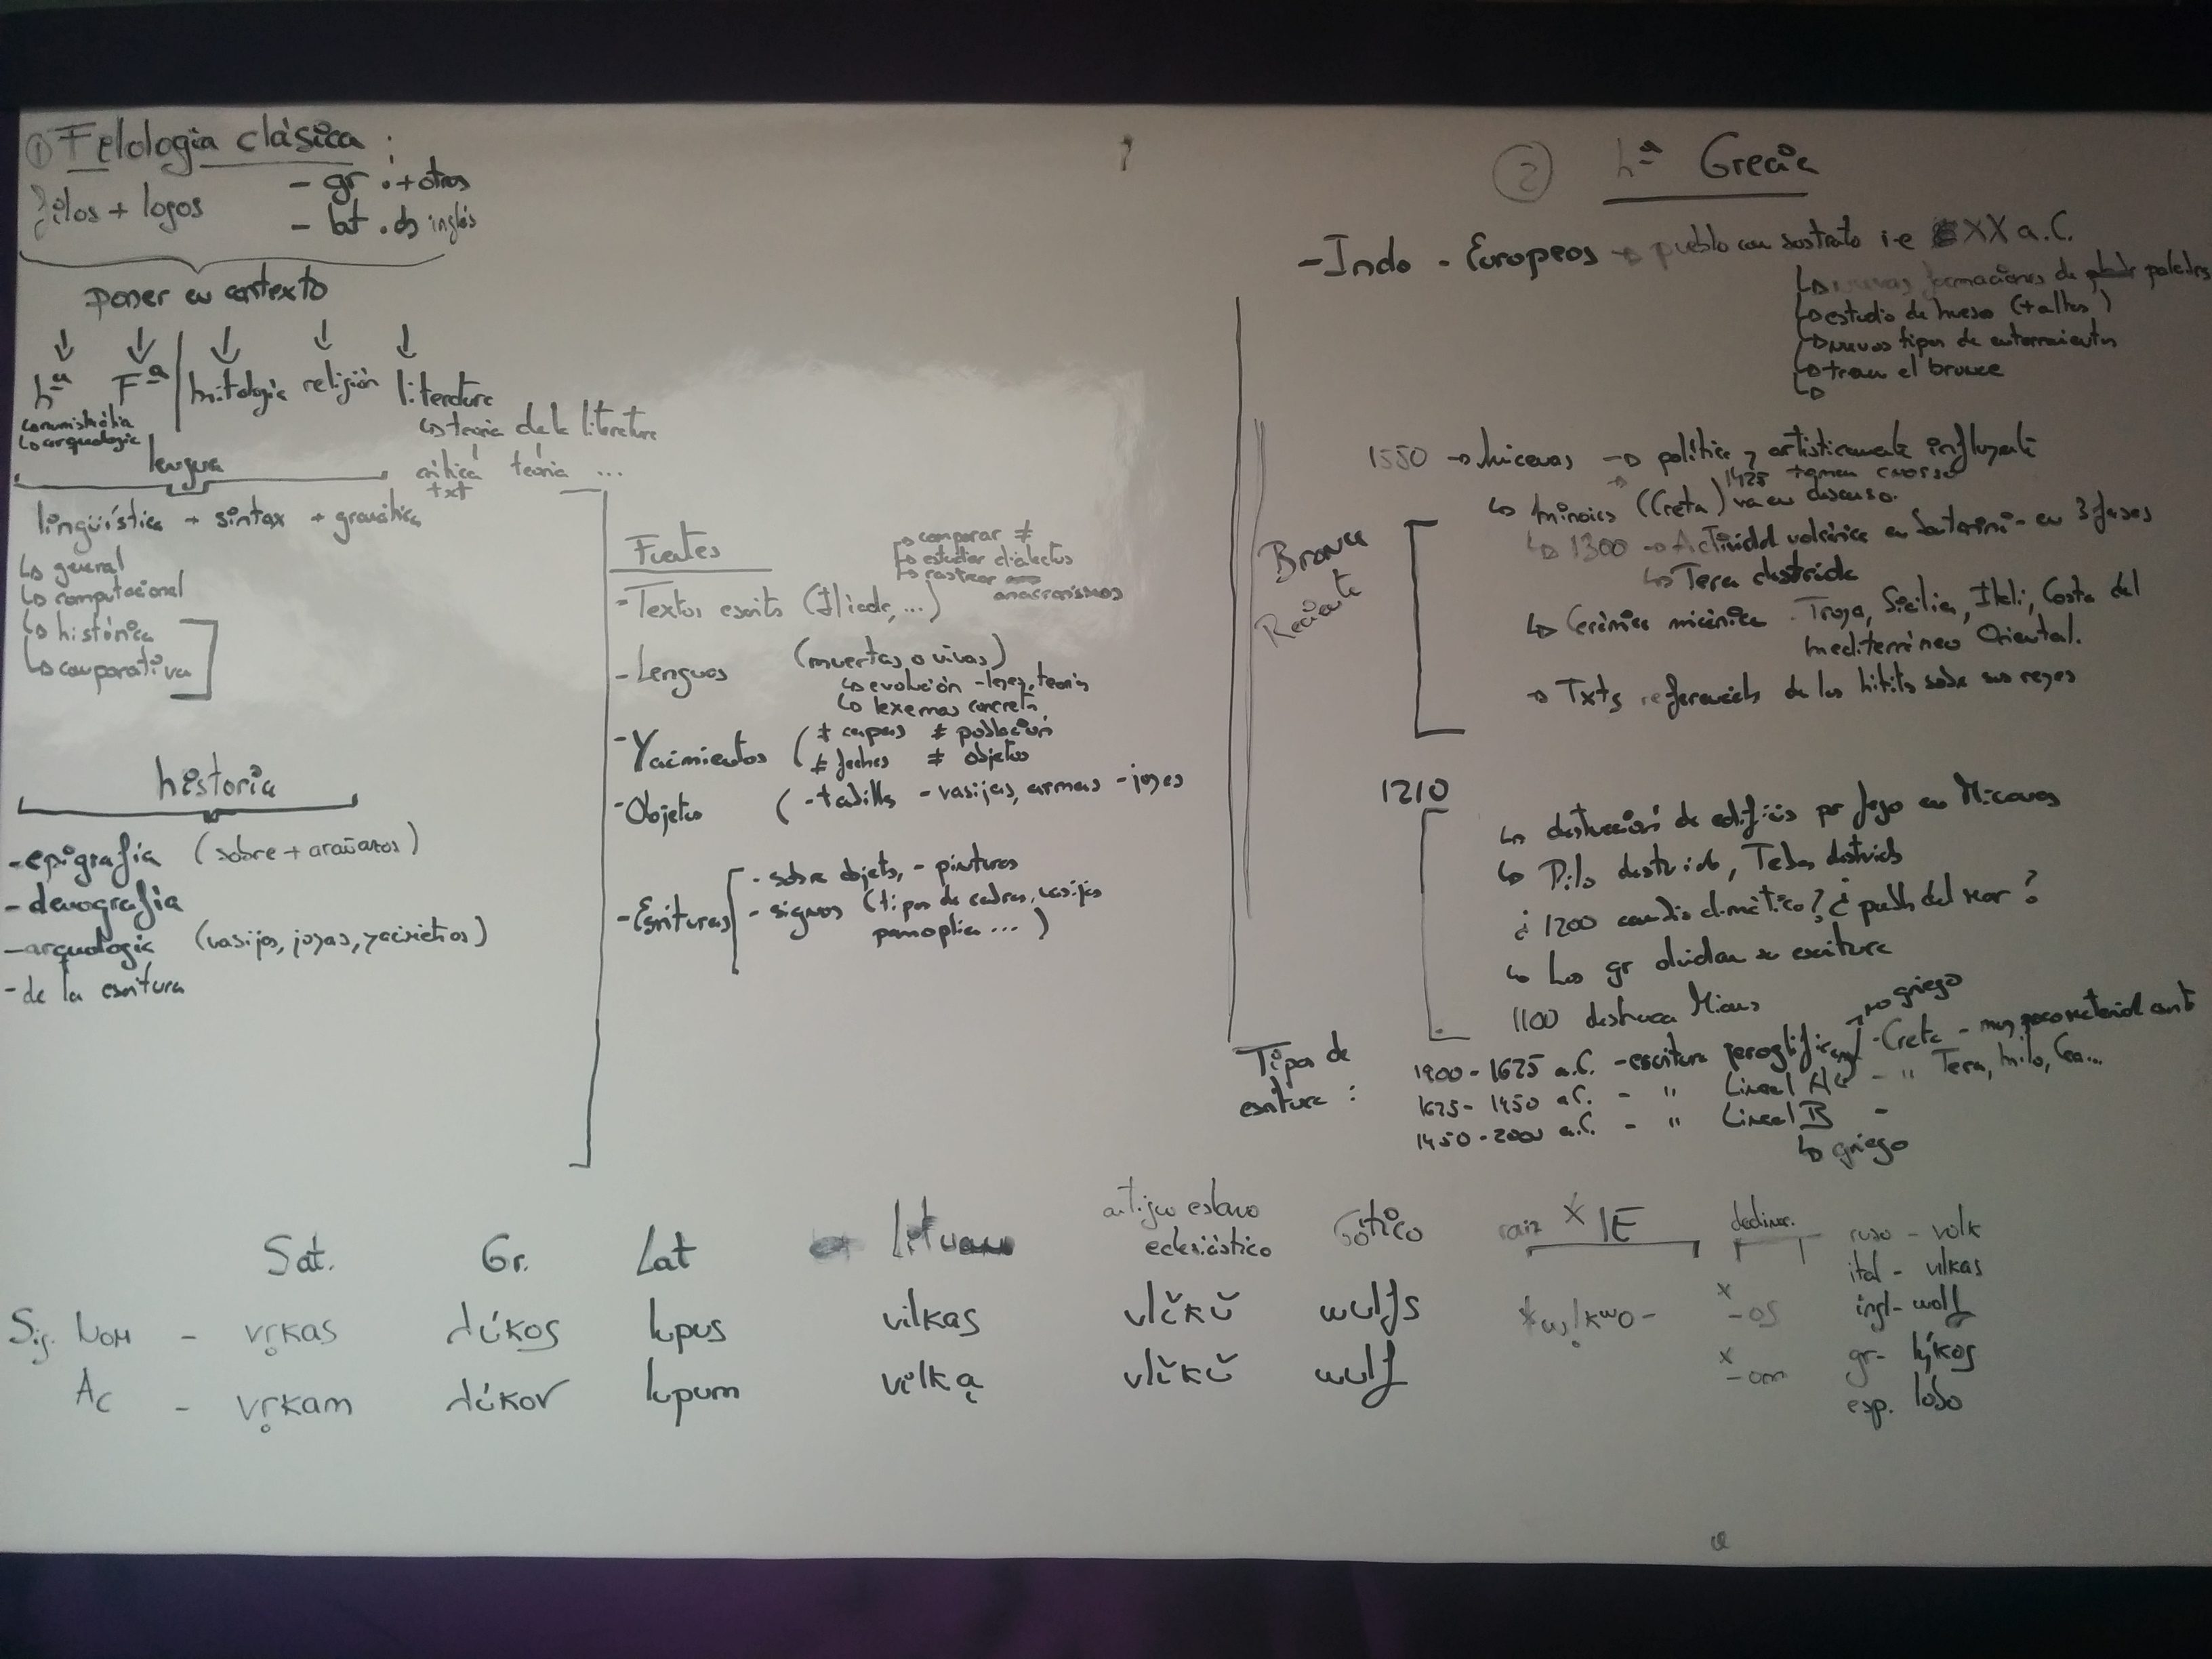 ① Filología clásica :
filos + logos
- gr. + otros
- lat. inglés
poner en contexto
hª Fª mitología religión literatura
↳ numismática
↳ arqueología
↳ teoría de la literatura
crítica teoría ...
txt
lengua
lingüística + sintax + gramática
↳ general
↳ computacional
↳ histórica
↳ comparativa
historia
- epigrafía (sobre + arañazos)
- demografía
- arqueología (vasijas, joyas, yacimientos)
- de la escritura
Fuentes
↳ comparar ≠
↳ estudiar dialectos
↳ rastrear
anacronismos
- Textos escritos (Ilíada, ...)
- Lenguas (muertas o vivas)
↳ evolución - leyes, teorías
↳ lexemas concretos
- Yacimientos (≠ capas ≠ población
≠ fechas ≠ objetos
- Objetos (- tablillas - vasijas, armas - joyas
- Escrituras
- sobre objetos, - pinturas
- signos (tipos de cabras, vasijas
panoplia ... )
② hª Grecia
- Indo - Europeos → pueblo con sustrato i-e XX a.C.
↳ nuevas formaciones de palacios
↳ estudio de hueso (+ altos)
↳ nuevos tipos de enterramientos
↳ traen el bronce
↳
Bronce
Reciente
1550 → Micenas → política y artísticamente influyente
1425 toman cnosso
↳ Minoics (Creta) va en descenso.
↳ 1300 → Actividad volcánica en Santorini - en 3 fases
↳ Tera destruida
↳ Cerámica micénica . Troya, Sicilia, Itali, Costa del
mediterráneo Oriental.
→ Txts referencials de los hititas sobre sus reyes
1210
↳ destrucción de edificios por fuego en Micenas
↳ Pilo destruido, Tebas destruida
¿ 1200 cambio climático? ¿ puebls del mar ?
↳ Los gr olvidan su escritura
1100 destrucción Micenas
Tipos de
escritura :
1900 - 1625 a.C. - escritura jeroglífica - Creta - muy poco material
no griego
1625 - 1450 a.C. - " Lineal A - " Tera, Milo, Cea...
1450 - 2000 a.C. - " Lineal B -
↳ griego
Sat. Gr. Lat Lituano antiguo eslavo eclesiástico Gótico raíz * IE declinac.
Sig. Nom - vṛkas λύκος lupus vilkas vlĭkŭ wulfs *wḷkwo- *-os
Ac - vṛkam λύκον lupum vilką vlĭkŭ wulf *-om
ruso - volk
ital - vilkas
ingl - wolf
gr - lýkos
esp. lobo